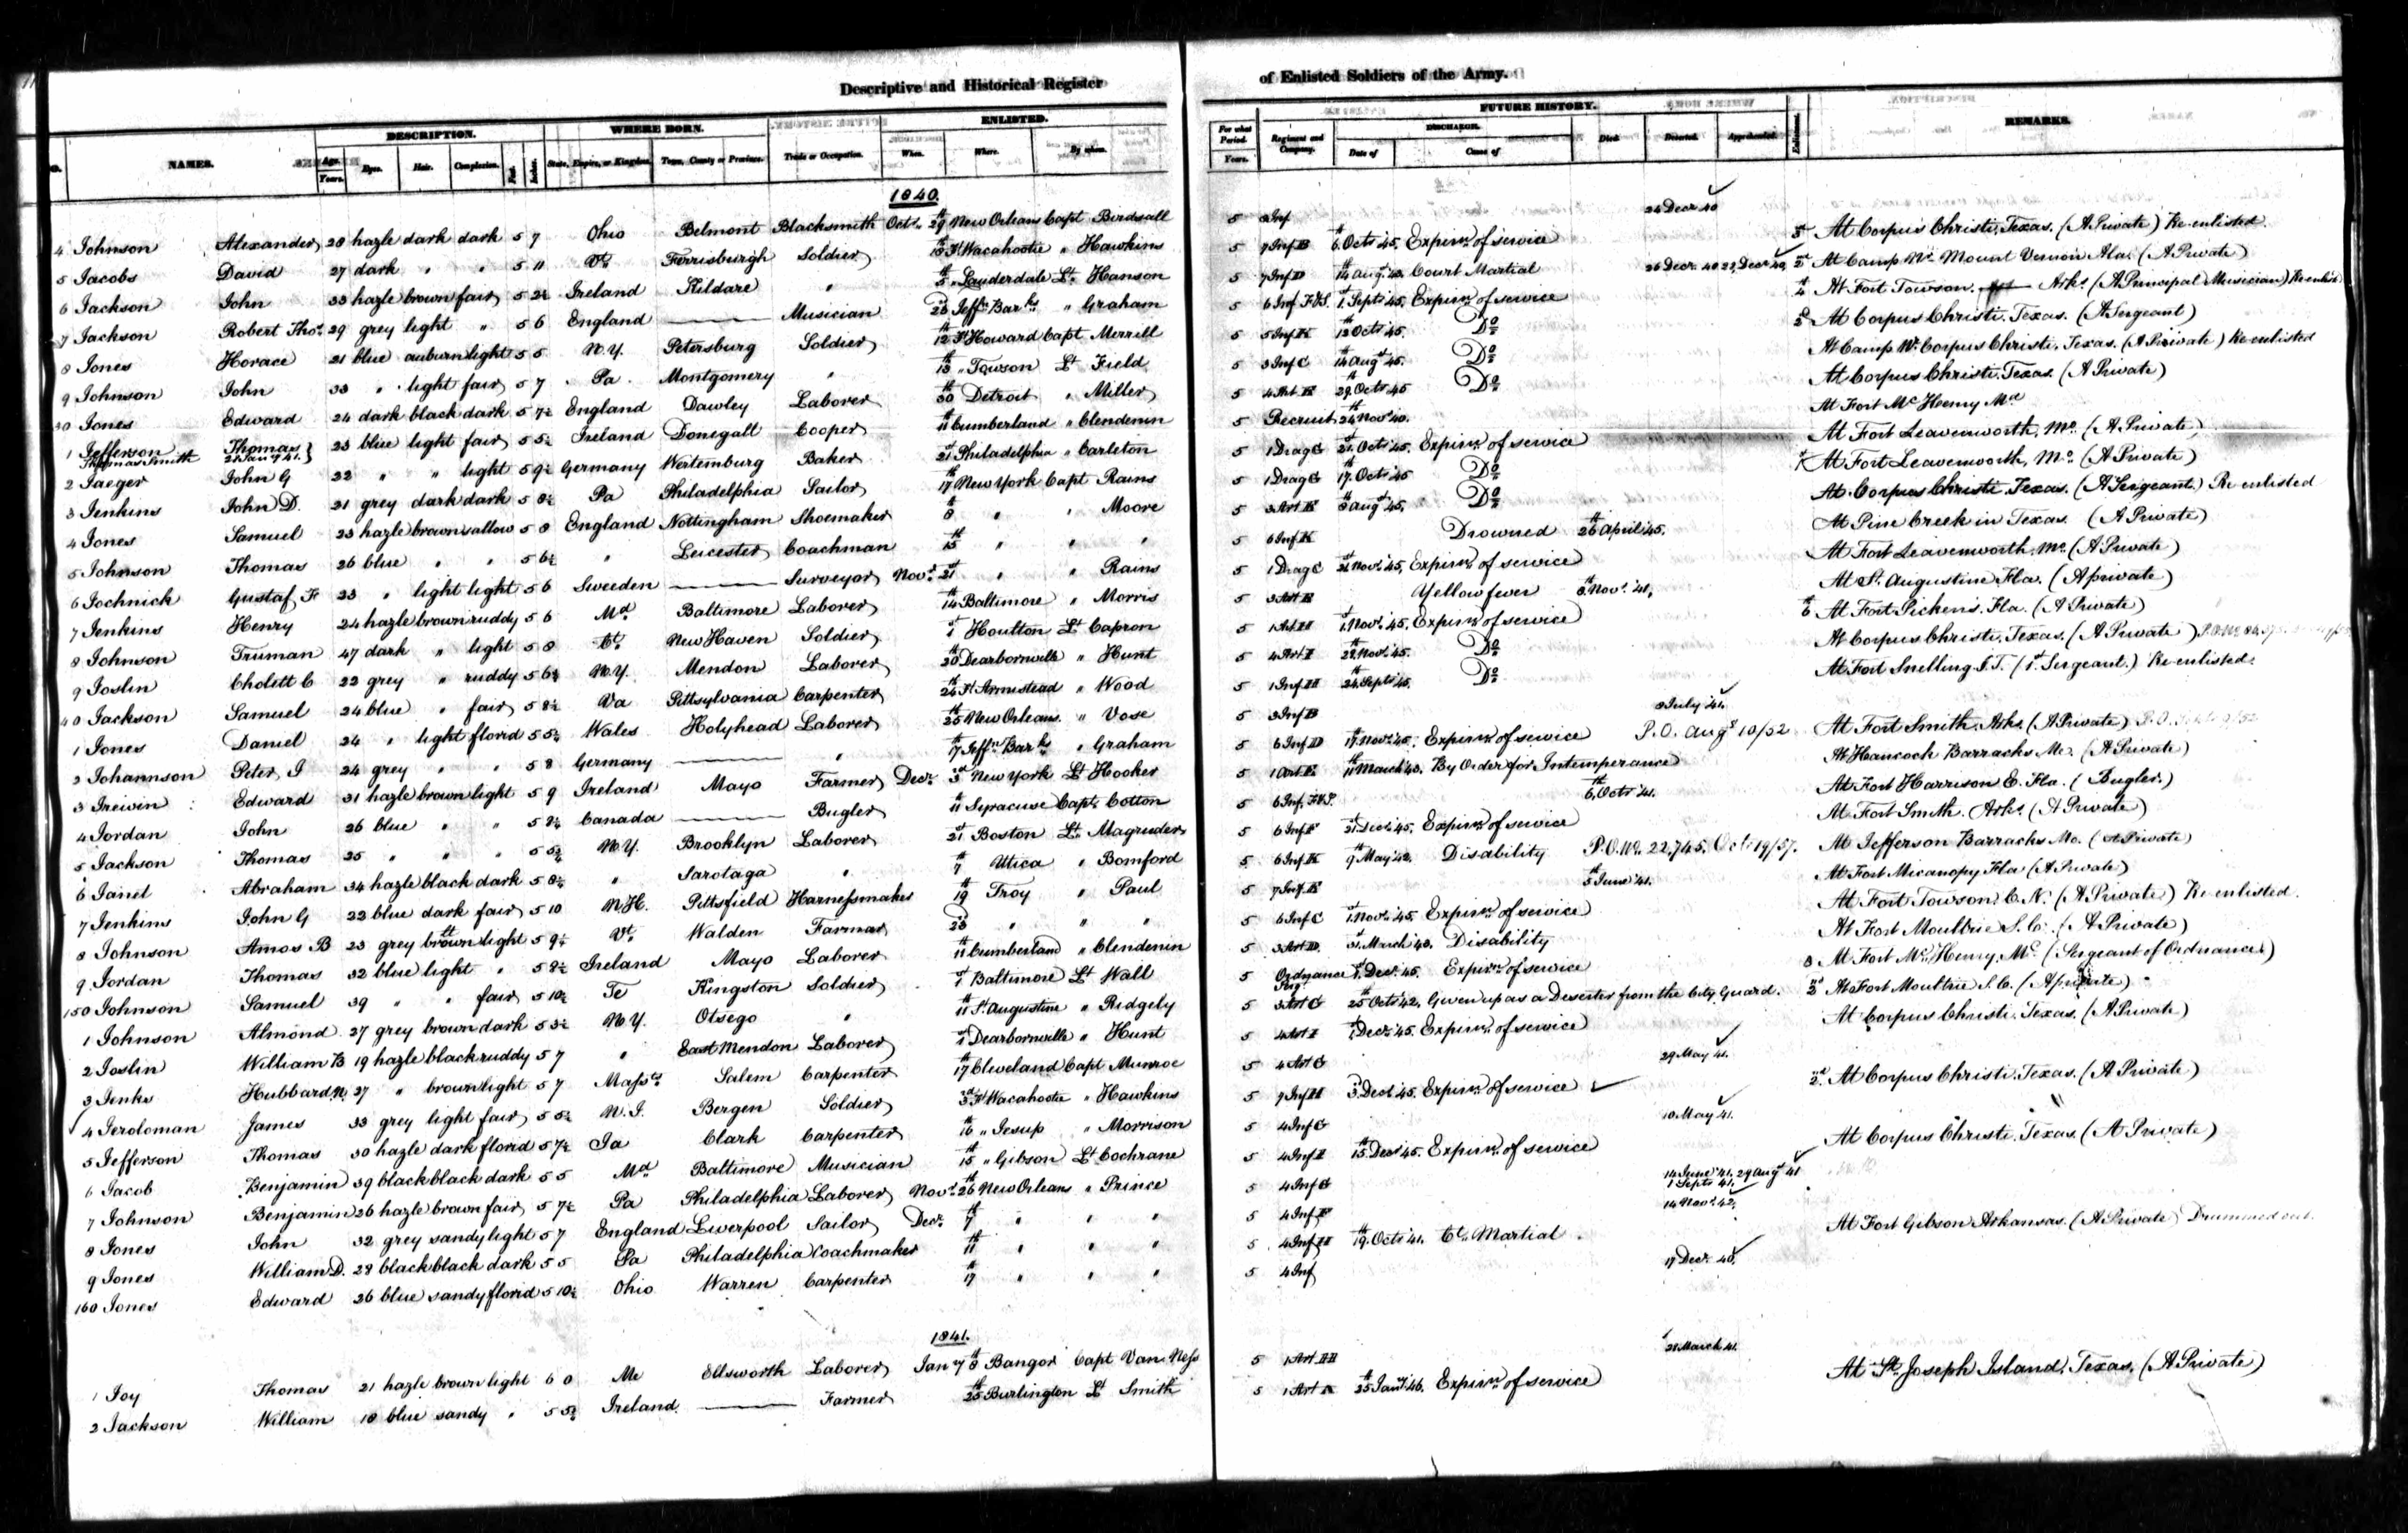 Descriptive and Historical Register
NAMES. DESCRIPTION. WHERE BORN. ENLISTED.
Age. Years. Eyes. Hair. Complexion. Feet. Inches. State, Empire, or Kingdom. Town, County or Province. Trade or Occupation. When. Where. By whom.
1840.
4 Johnson Alexander 28 hazle dark dark 5 7 Ohio Belmont Blacksmith Octr. 29th New Orleans Capt Birdsall
5 Jacobs David 27 dark " " 5 11 Vt. Ferrisburgh Soldier Ft Wacahootie " Hawkins
6 Jackson John 33 hazle brown fair 5 2½ Ireland Kildare " 5th " Lauderdale Lt. Hanson
7 Jackson Robert Thos. 29 grey light " 5 6 England Musician 26 Jeffn Barks " Graham
8 Jones Horace 21 blue auburn light 5 5 N.Y. Petersburg Soldier 12th Ft Howard Capt Merrill
9 Johnson John 33 " light fair 5 7 Pa Montgomery " 13th " Towson Lt Field
30 Jones Edward 24 dark black dark 5 7½ England Dawley Laborer 30th Detroit " Miller
1 Jefferson Thomas } 23 blue light fair 5 5½ Ireland Donegall Cooper 11th Cumberland " Clendenin
Thomas Smith 21 Jany 41.
2 Jaeger John G 22 " " light 5 9½ Germany Wertemburg Baker 21st Philadelphia " Carleton
3 Jenkins John D. 21 grey dark dark 5 8½ Pa Philadelphia Sailor 17th New York Capt Rains
4 Jones Samuel 23 hazle brown sallow 5 8 England Nottingham Shoemaker 8th " " Moore
5 Johnson Thomas 26 blue " " 5 6½ " Leicester Coachman 15th " " "
6 Jochnick Gustaf F. 23 " light light 5 6 Sweeden Surveyor Novr. 21st " " Rains
7 Jenkins Henry 24 hazle brown ruddy 5 6 Md Baltimore Laborer 14th Baltimore " Morris
8 Johnson Truman 47 dark " light 5 8 Ct. New Haven Soldier 1st Houlton Lt Capron
9 Joslin Cholett C 22 grey " ruddy 5 6½ N.Y. Mendon Laborer 20th Dearbornville " Hunt
40 Jackson Samuel 24 blue " fair 5 8½ Va Pittsylvania Carpenter 24th Ft Armistead " Wood
1 Jones Daniel 24 " light florid 5 5½ Wales Holyhead Laborer 25th New Orleans " Vose
2 Johannson Peter J 24 grey " " 5 8 Germany " 17th Jeffn Barks " Graham
3 Irewin Edward 31 hazle brown light 5 9 Ireland Mayo Farmer Decr. 3rd New York Lt Hooker
4 Jordan John 26 blue " " 5 8¼ Canada Bugler 11th Syracuse Capt. Cotton
5 Jackson Thomas 25 " " " 5 5¾ N.Y. Brooklyn Laborer 21st Boston Lt Magruder
6 Janet Abraham 34 hazle black dark 5 8½ " Saratoga " 7th Utica " Bomford
7 Jenkins John G 22 blue dark fair 5 10 N.H. Pittsfield Harnessmaker 19th Troy " Paul
8 Johnson Amos B 23 grey brown light 5 9¼ Vt. Walden Farmer 23 " " "
9 Jordan Thomas 32 blue light " 5 8½ Ireland Mayo Laborer 11th Cumberland " Clendenin
150 Johnson Samuel 39 " " fair 5 10½ Te Kingston Soldier 1st Baltimore Lt Wall
1 Johnson Almond 27 grey brown dark 5 3½ N.Y. Otsego " 11th St. Augustine " Ridgely
2 Joslin William B 19 hazle black ruddy 5 7 " East Mendon Laborer 1st Dearbornville " Hunt
3 Jenks Hubbard N. 27 " brown light 5 7 Massts Salem Carpenter 17th Cleveland Capt Munroe
4 Jerdoman James 33 grey light fair 5 5½ N.J. Bergen Soldier 3rd Ft Wacahootie " Hawkins
5 Jefferson Thomas 30 hazle dark florid 5 7½ Ia Clark Carpenter 16th " Jesup " Morrison
6 Jacob Benjamin 39 black black dark 5 5 Md Baltimore Musician 15th " Gibson Lt Cochrane
7 Johnson Benjamin 26 hazle brown fair 5 7½ Pa Philadelphia Laborer Novr. 26th New Orleans " Prince
8 Jones John 32 grey sandy light 5 7 England Liverpool Sailor Decr. 7th " " "
9 Jones William D. 28 black black dark 5 5 Pa Philadelphia Coachmaker 11th " " "
160 Jones Edward 26 blue sandy florid 5 10½ Ohio Warren Carpenter 17th " " "
1841.
1 Joy Thomas 21 hazle brown light 6 0 Me Ellsworth Laborer Jany 8th Bangor Capt Van Ness
2 Jackson William 18 blue sandy " 5 5¾ Ireland Farmer 25th Burlington Lt Smith
of Enlisted Soldiers of the Army.
For what Period. Years. Regiment and Company. FUTURE HISTORY. DISCHARGE. Date of Cause of Died. Deserted. Apprehended. Enlistment. REMARKS.
5 Inf 24 Decr 40
5 7 Inf B 6th Octr. 45. Expirn. of service 3d At Corpus Christi, Texas. (A Private) Re-enlisted.
5 7 Inf D 14th Augt. 42. Court Martial 26 Decr. 40 29 Decr 40, 2d At Camp Nr Mount Vernon Ala. (A Private)
5 6 Inf F.&S. 1st Septr. 45. Expirn. of service 4th At Fort Towson. Arks. (A Principal Musician) Re-enlisted
5 5 Inf K 12th Octr 45. Do 2d At Corpus Christi, Texas. (A Sergeant)
5 3 Inf C 14th Augt 45. Do At Camp Nr. Corpus Christi, Texas. (A Private) Re-enlisted
5 4 Art 29th Octr 45 Do At Corpus Christi, Texas. (A Private)
5 Recruit 24th Novr 40. At Fort McHenry Md
5 1 Drag G 21st Octr 45. Expirn. of service At Fort Leavenworth, Mo. (A Private)
5 1 Drag G 17th Octr 45 Do At Fort Leavenworth, Mo. (A Private)
5 3 Art 8th Augt 45, Do At Corpus Christi, Texas. (A Sergeant.) Re-enlisted
5 6 Inf K Drowned 26th April 45. At Pine Creek in Texas. (A Private)
5 1 Drag C 21st Novr. 45, Expirn. of service At Fort Leavenworth, Mo. (A Private)
5 3 Art Yellow fever 8th Novr. 41, At St. Augustine Fla. (A private)
5 1 Art H 1st Novr. 45. Expirn. of service 6th At Fort Pickens. Fla. (A Private)
5 4 Art I 22d Novr. 45. Do At Corpus Christi, Texas. (A Private)
5 1 Inf H 24th Septr 45. Do At Fort Snelling I.T. (1st Sergeant.) Re-enlisted.
5 3 Inf B 8 July 41.
5 6 Inf D 17th Novr 45. Expirn. of service P.O. Augt 10/52 At Fort Smith. Arks. (A Private)
5 1 Art 11th March 43. By Order for Intemperance At Hancock Barracks Me. (A Private)
5 6 Inf. F&S. 6th Octr 41. At Fort Harrison E. Fla. (Bugler.)
5 6 Inf 21st Decr. 45. Expirn. of service At Fort Smith. Arks. (A Private)
5 6 Inf K 9th May 42. Disability P.O. No. 22,745. Oct. 19/57. At Jefferson Barracks Mo. (A Private)
5 7 Inf 5th June 41. At Fort Micanopy Fla (A Private)
5 6 Inf C 1st Novr. 45. Expirn. of service At Fort Towson. C.N. (A Private) Re-enlisted.
5 3 Art D. 31st March 43. Disability At Fort Moultrie S.C. (A Private)
5 Ordnance Sergt 1st Decr. 45. Expirn. of service 8 At Fort McHenry, Md. (Sergeant of Ordnance)
5 3 Art G 25th Octr 42. Given up as a Deserter from the City Guard. 2nd At Fort Moultrie S.C. (A private)
5 4 Art I 1st Decr. 45. Expirn. of service At Corpus Christi. Texas. (A Private)
5 4 Art G 29 May 41.
5 7 Inf H 3d Decr. 45. Expirn. of service 2nd. At Corpus Christi. Texas. (A Private)
5 4 Inf G 10 May 41.
5 4 Inf I 15th Decr 45. Expirn. of service At Corpus Christi. Texas. (A Private)
5 4 Inf G 14 June 41. 29 Augt 41
1 Septr 41.
5 4 Inf 14 Novr 42.
5 4 Inf H 19th Octr 41. Ct. Martial. At Fort Gibson Arkansas. (A Private) Drummed out.
5 4 Inf 17 Decr 40.
5 1 Art H 28 March 41.
5 1 Art 25th Jany. 46. Expirn. of service At St. Joseph Island, Texas. (A Private)